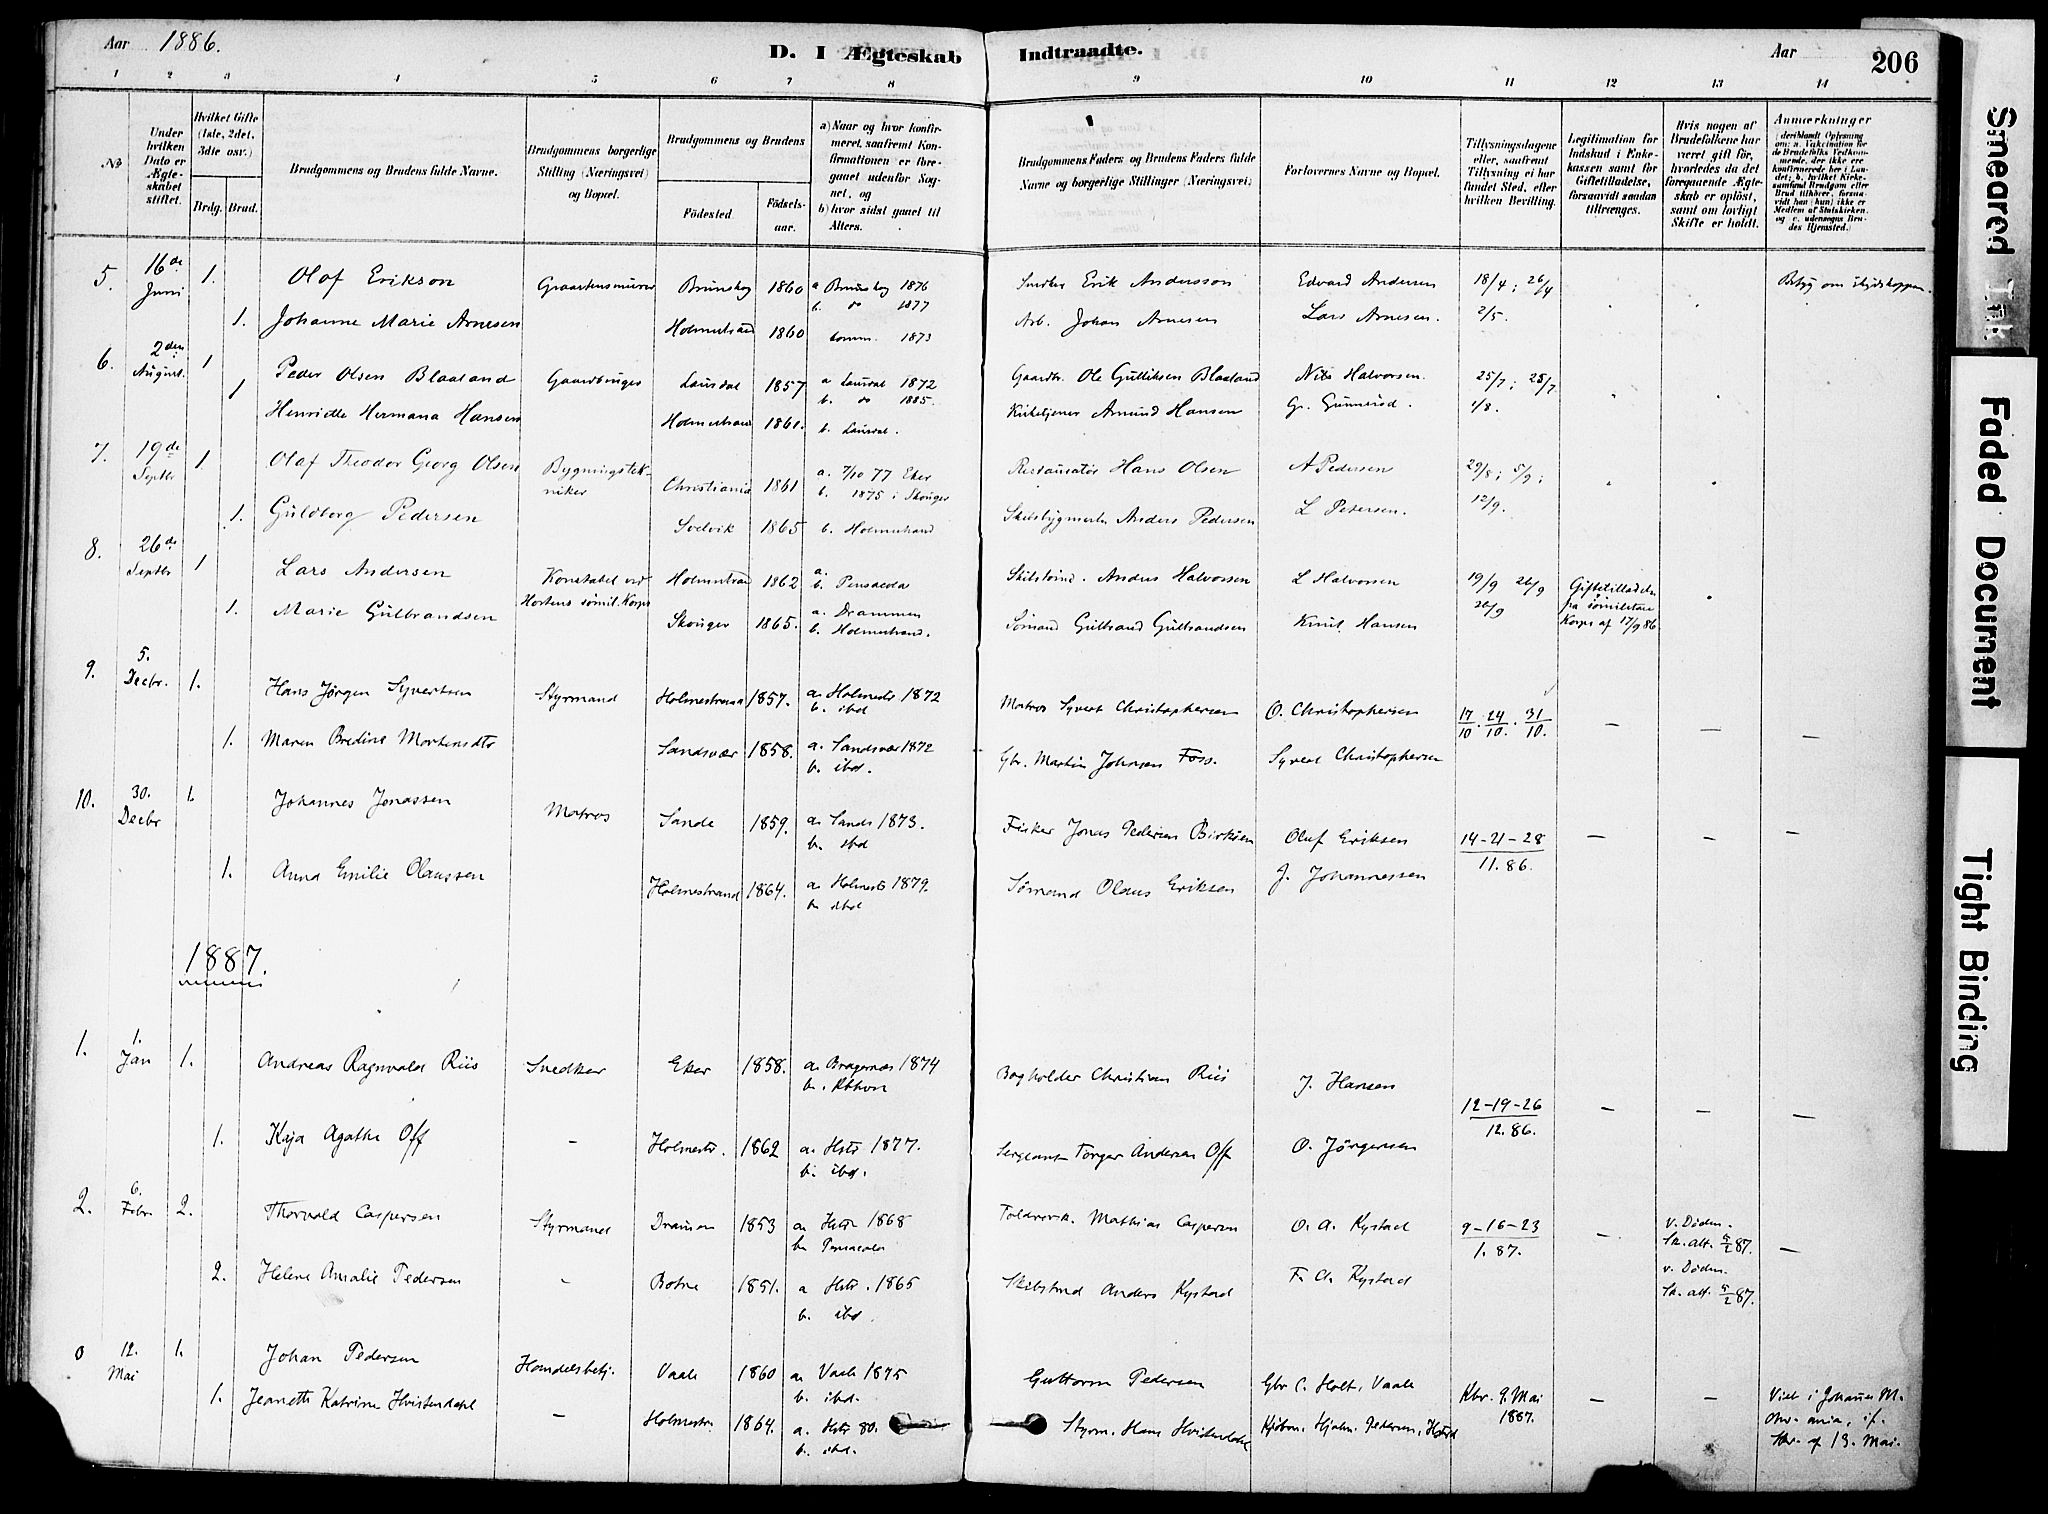 Aar 1886.
D. I Ægteskab Indtraadte.
Aar
206
1 2 3 4 5 6 7 8 9 10 11 12 13 14
No
Under hvilken Dato er Ægteskabet stiftet.
Hvilket Gifte (1ste, 2det, 3die osv.)
Brdg. Brud.
Brudgommens og Brudens fulde Navne.
Brudgommens borgerlige Stilling (Næringsvei) og Bopæl.
Brudgommens og Brudens
Födested.
Födsels-aar.
a) Naar og hvor konfirmeret, saafremt Konfirmationen er foregaaet udenfor Sognet, og
b) hvor sidst gaaet til Alters.
Brudgommens Faders og Brudens Faders fulde Navne og borgerlige Stillinger (Næringsvei)
Forlovernes Navne og Bopæl.
Tillysningsdagene eller, saafremt Tillysning ei har fundet Sted, efter hvilken Bevilling.
Legitimation for Indskud i Enkekassen samt for Giftetilladelse, forsaavidt saadan tiltrænges.
Hvis nogen af Brudefolkene har været gift för, hvorledes da det foregaaende Ægteskab er oplöst, samt om lovligt Skifte er holdt.
Anmærkninger (deriblandt Oplysning om: a. Vakcination for de Brudefolks Vedkommende, der ikke ere konfirmerede her i Landet; b. hvilket Kirkesamfund Brudgom eller Brud tilhörer, forsaavidt han (hun) ikke er Medlem af Statskirken, og c. udensogns Brudes Hjemsted.)
5. 16de Juni 1. Olaf Erikson Graastensmurer Brunskog 1860 a Brunskog 1876 b. do 1877 Smed Erik Andersson Edvard Andersen 18/4; 26/4
1. Johanne Marie Arnesen Holmestrand 1860 1873 Arb. Johan Arnesen Lars Arnesen. 2/5.
6. 2den August. 1 Peder Olsen Blaaland Gaardbruger Laurdal 1857 a Laurdal 1872 b. do 1885. Gaardbr. Ole Gulliksen Blaaland Nils Halvorsen. 25/7; 28/7
1 Henriette Hermana Hansen Holmestrand 1861. b. Laurdal. Kirketjener Amund Hansen 1/8.
7. 19de Septbr 1. Olaf Theodor Georg Olsen Bygningstekniker Christiania 1861 a. 7/10 77 Eker b. 1875 i Skouger Restauratör Hans Olsen A Pedersen 29/8; 5/9;
1. Guldborg Pedersen Svelvik 1865 b. Holmestrand Skibsbygmester Anders Pedersen L Petersen. 12/9.
8. 26de Septbr 1 Lars Andersen Konstabel ved Hortens sömil. Korps Holmestrand 1862 a. b. Pensacola Skibstömd. Anders Halvorsen L Halvorsen 19/9 26/9 Giftetilladelse fra sömilitære Korps af 17/9 86
1. Marie Gulbrandsen Skouger 1865. a. Drammen b. Holmestrand. Sömand Gulbrand Gulbrandsen Knut Hansen 26/9
9. 5. Decbr. 1. Hans Jørgen Syvertsen Styrmand Holmestrand 1857. a. Holmestr 1872 b. ibd Matros Syvert Christophersen O. Christophersen 17/10. 24/10. 31/10. — — —
1. Maren Bredine Mortensdtr Sandsvær 1858. a. Sandsvær 1872 b. ibd. Gbr. Martin Johnsen Foss. Syvert Christophersen
10. 30. Decbr 1. Johannes Jonassen Matros Sande 1859. a. Sande 1873. b. ibd Fisker Jonas Pedersen Oluf Eriksen 14-21-28 11.86. — — —
1. Anna Emilie Olaussen Holmestrand 1864. a. Holmestr 1879. b. ibd Sømand Olaus Eriksen J. Johannessen
1887.
1. 1. Jan 1. Andreas Ragnvald Riis Snedker Eker 1858. a. Bragernæs 1874 Bogholder Christian Riis J. Hansen 12-19-26 12.86. — — —
1. Kaja Agathe Off - Holmestr. 1862 a. Hstr 1877. b. ibd. Sergeant Torger Andersen Off O. Jørgensen
2. 6. Febr. 2. Thorvald Caspersen Styrmand Drammen 1853 a. Hstr 1868 b. Pensacola Toldrorsk. Mathias Caspersen O. A. Kystad 9-16-23 1.87. — v. Døden. Sk. att. 5/2 87. —
2. Helene Amalie Pedersen - Botne 1851. a. Hstr. 1865 b. ibd. Skibstmd Anders Kystad F. A. Kystad v. Døden. Sk. att. 5/2 87.
0 12. Mai 1. Johan Pedersen Handelsbetj. Vaale 1860 a. Vaale 1875 b. ibd. Guttorm Pedersen Gbr C. Holt, Vaale Kbr. 9. Mai 1887. — — Viet i Johannes M.
1. Jeanette Katrine Hvistendahl - Holmestr. 1864. a. Hstr 80. b. ibd. Styrm. Hans Hvistendahl Kjøbm. Hjalm. Pedersen, Hstrd af 13. Mai.
Smeared Ink
Faded Document
Tight Binding